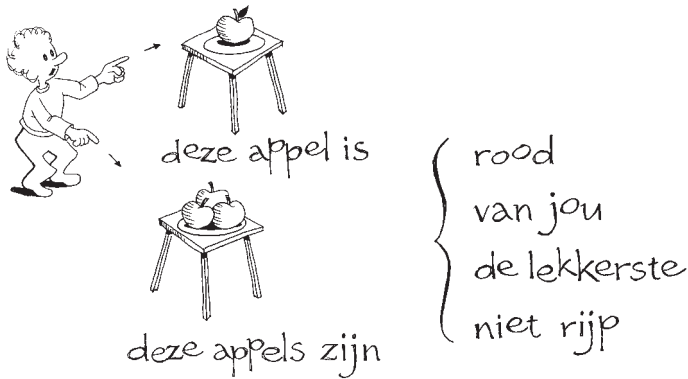 deze appel is
deze appels zijn
rood
van jou
de lekkerste
niet rijp